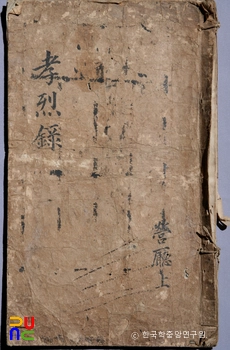 孝烈錄
營廳上
ⓒ 한국학중앙연구원